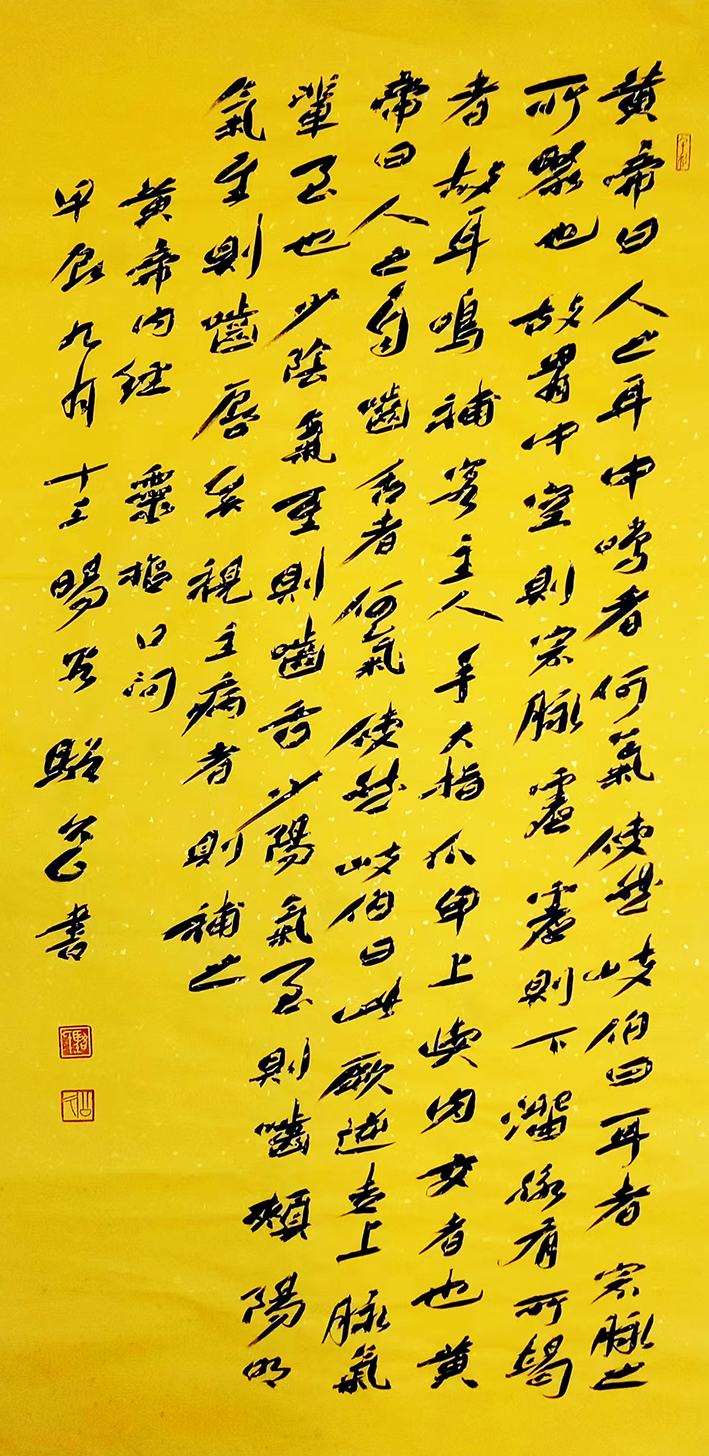 黃帝曰人之耳中鳴者何氣使然岐伯曰耳者宗脈之
所聚也故胃中空則宗脈虛虛則下溜脈有所竭
者故耳鳴補客主人手大指爪甲上與肉交者也黃
帝曰人之自齧舌者何氣使然岐伯曰此厥逆走上脈氣
輩至也少陰氣至則齧舌少陽氣至則齧頰陽明
氣至則齧唇矣視主病者則補之
黃帝內經 靈樞口問
甲辰九月十三暘谷書